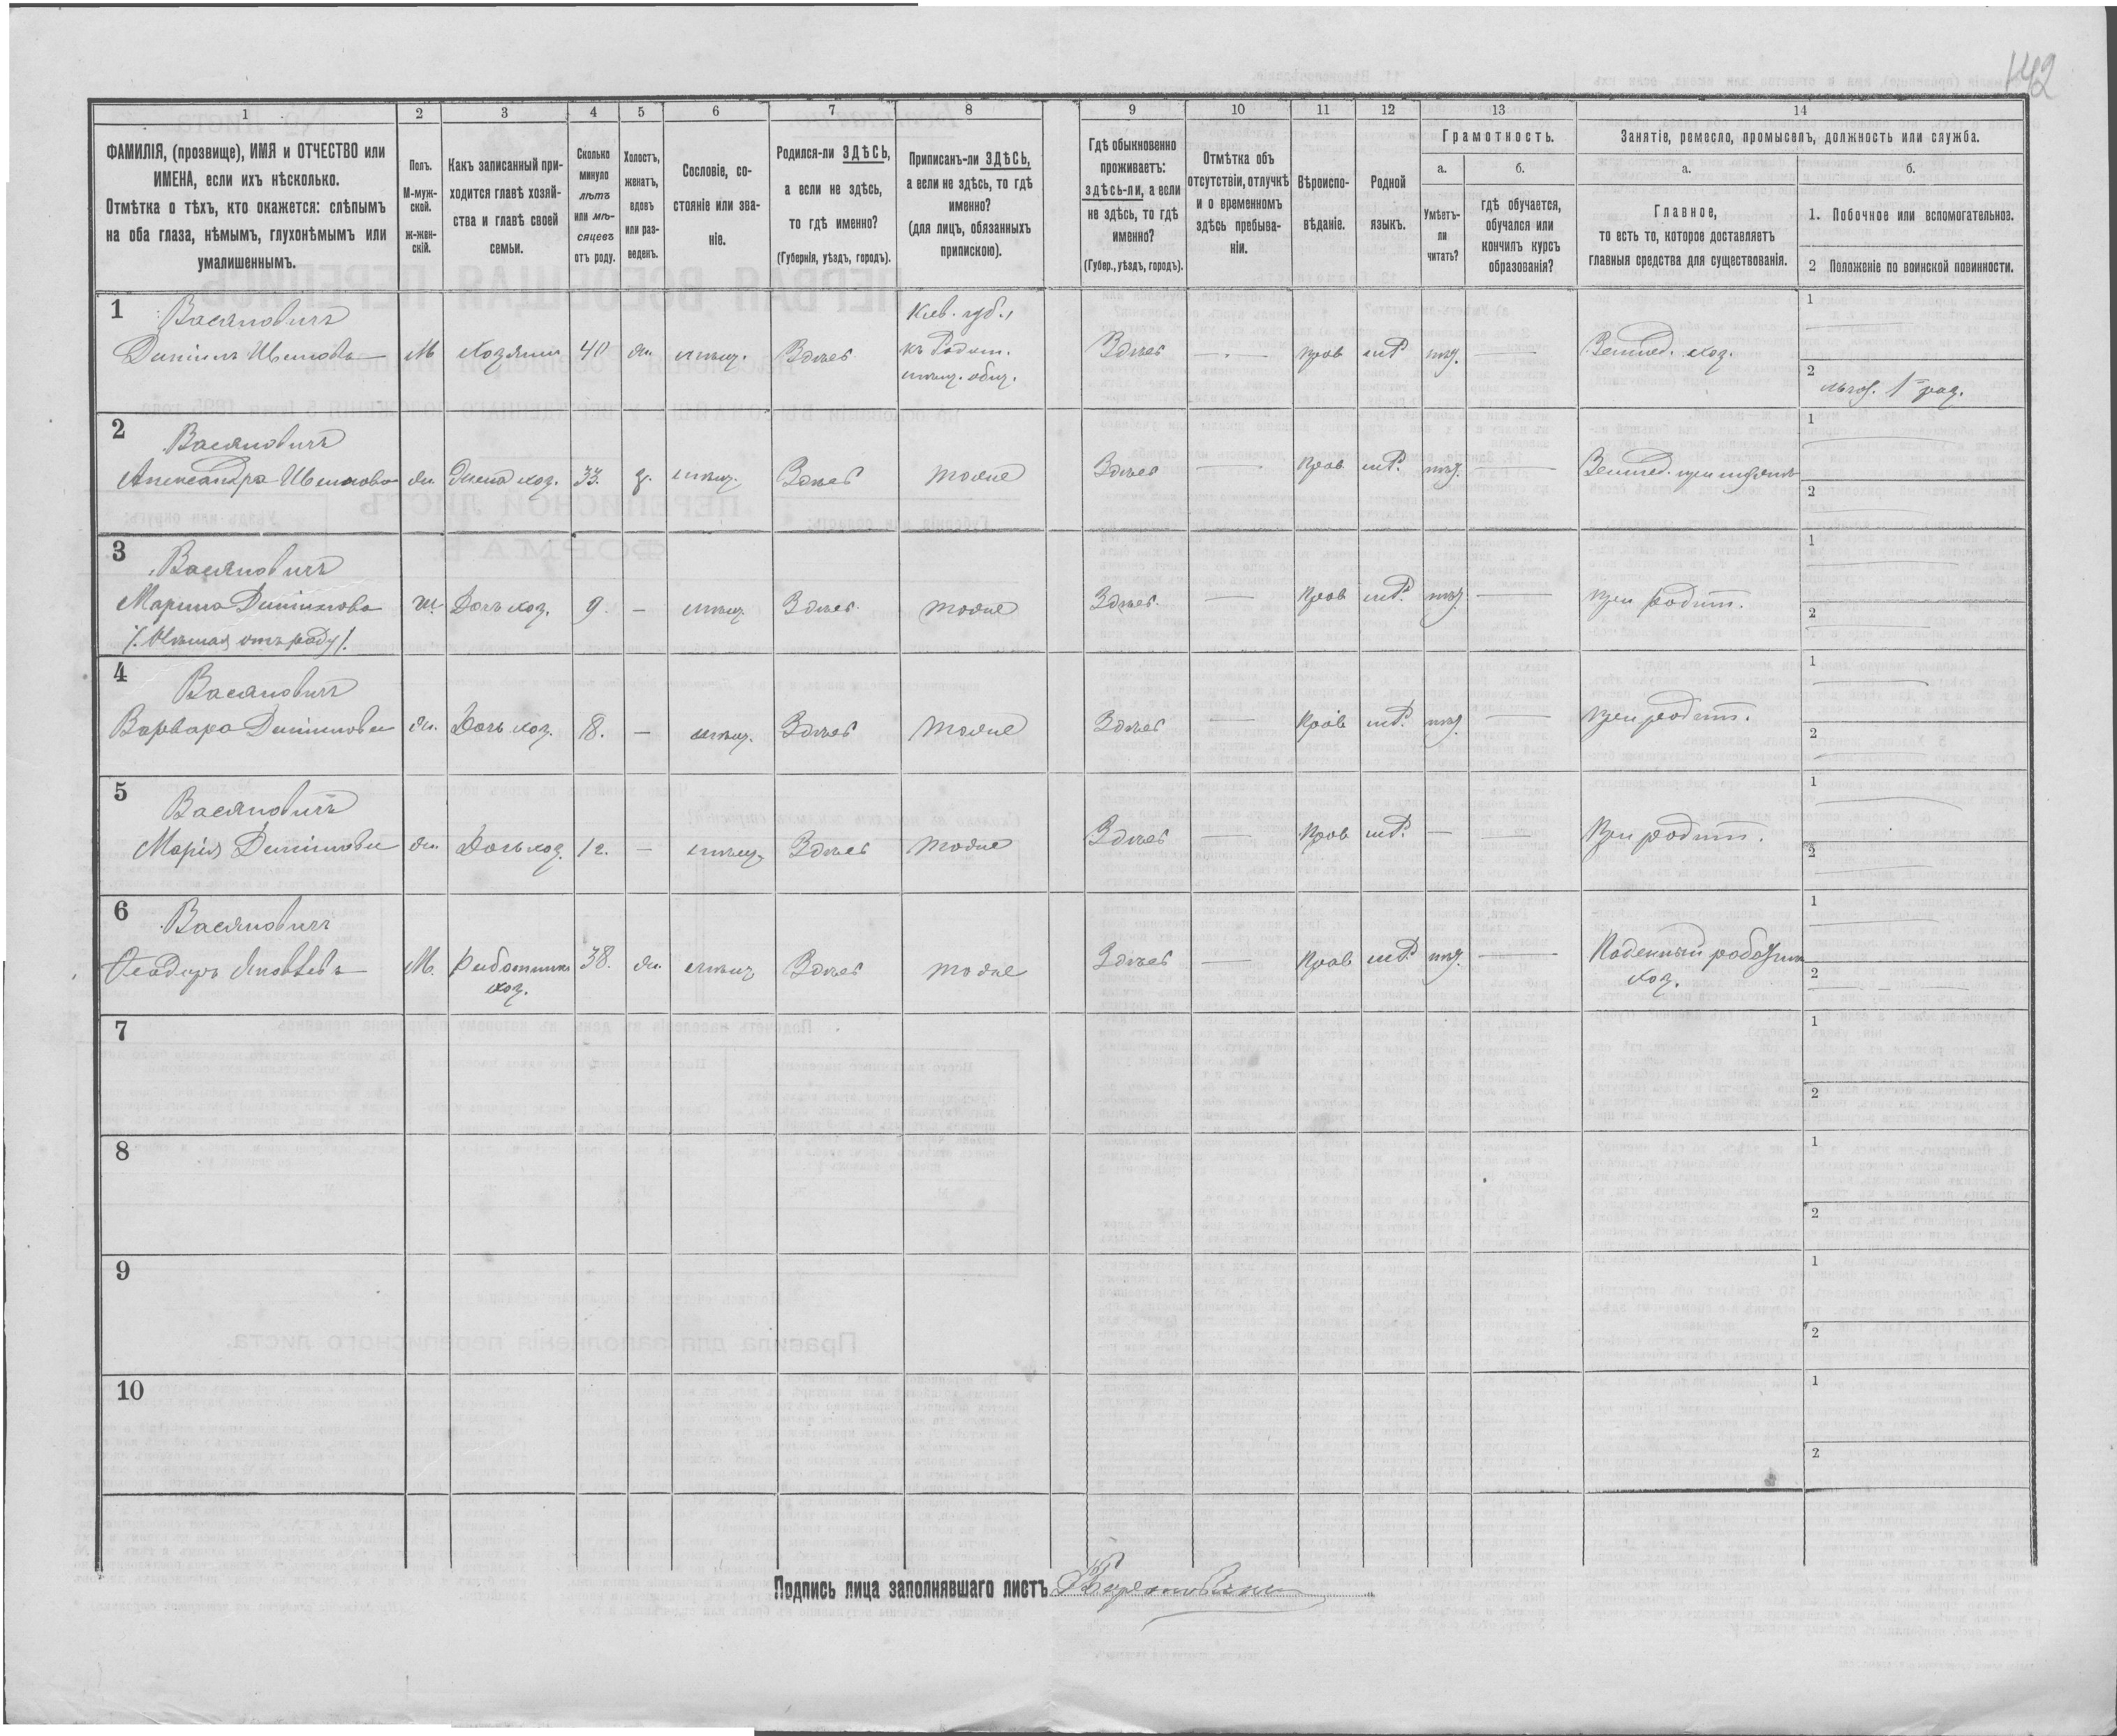 142
1
2
3
4
5
6
7
8
9
10
11
12
13
14
ФАМИЛІЯ, (прозвище), ИМЯ и ОТЧЕСТВО или
ИМЕНА, если ихъ нѣсколько.
Отмѣтка о тѣхъ, кто окажется: слѣпымъ
на оба глаза, нѣмымъ, глухонѣмымъ или
умалишеннымъ.
Полъ.
М-муж-
ской.
Ж-жен-
скій.
Какъ записанный при-
ходится главѣ хозяй-
ства и главѣ своей
семьи.
Сколько
минуло
лѣтъ
или мѣ-
сяцевъ
отъ роду.
Холостъ,
женатъ,
вдовъ
или раз-
веденъ.
Сословіе, со-
стояніе или зва-
ніе.
Родился-ли ЗДѢСЬ,
а если не здѣсь,
то гдѣ именно?
(Губернія, уѣздъ, городъ).
Приписанъ-ли ЗДѢСЬ,
а если не здѣсь, то гдѣ
именно?
(для лицъ, обязанныхъ
припискою).
Гдѣ обыкновенно
проживаетъ:
здѣсь-ли, а если
не здѣсь, то гдѣ
именно?
(Губер., уѣздъ, городъ).
Отмѣтка объ
отсутствіи, отлучкѣ
и о временномъ
здѣсь пребыва-
ніи.
Вѣроиспо-
вѣданіе.
Родной
языкъ.
Грамотность.
а.
Умѣетъ-
ли
читать?
б.
гдѣ обучается,
обучался или
кончилъ курсъ
образованія?
Занятіе, ремесло, промыселъ, должность или служба.
а.
Главное,
то есть то, которое доставляетъ
главныя средства для существованія.
б.
1. Побочное или вспомогательное.
2 Положеніе по воинской повинности.
1 Васяновичъ
Даніилъ Ивановъ М Хозяинъ 40 ж. мѣщ. Здѣсь
Кіев. губ.,
къ Радом.
мѣщ. общ.
Здѣсь — прав нѣт — Землед. хоз.
1
2
льгот. 1 раз.
2 Васяновичъ
Александра Иванова ж. Жена хоз. 33. з. мѣщ. Здѣсь тоже Здѣсь — прав нѣт — Землед. при мужѣ
1
2
3 Васяновичъ
Марина Даніилова ж. Дочь хоз. 9. — мѣщ. Здѣсь тоже Здѣсь — прав нѣт — при родит.
/. Нѣмая отъ роду /.
1
2
4 Васяновичъ
Варвара Даніилова ж. Дочь хоз. 8. — мѣщ. Здѣсь тоже Здѣсь — прав нѣт — при родит.
1
2
5 Васяновичъ
Марія Даніилова ж. Дочь хоз. 1 г. — мѣщ. Здѣсь тоже Здѣсь — прав — — При родит.
1
2
6 Васяновичъ
Ѳеодоръ Яковлевъ М. Работникъ 38. ж. мѣщ Здѣсь тоже Здѣсь — прав нѣт — Поденный работник
хоз.
хоз.
1
2
7
1
2
8
1
2
9
1
2
10
1
2
Подпись лица заполнявшаго листъ